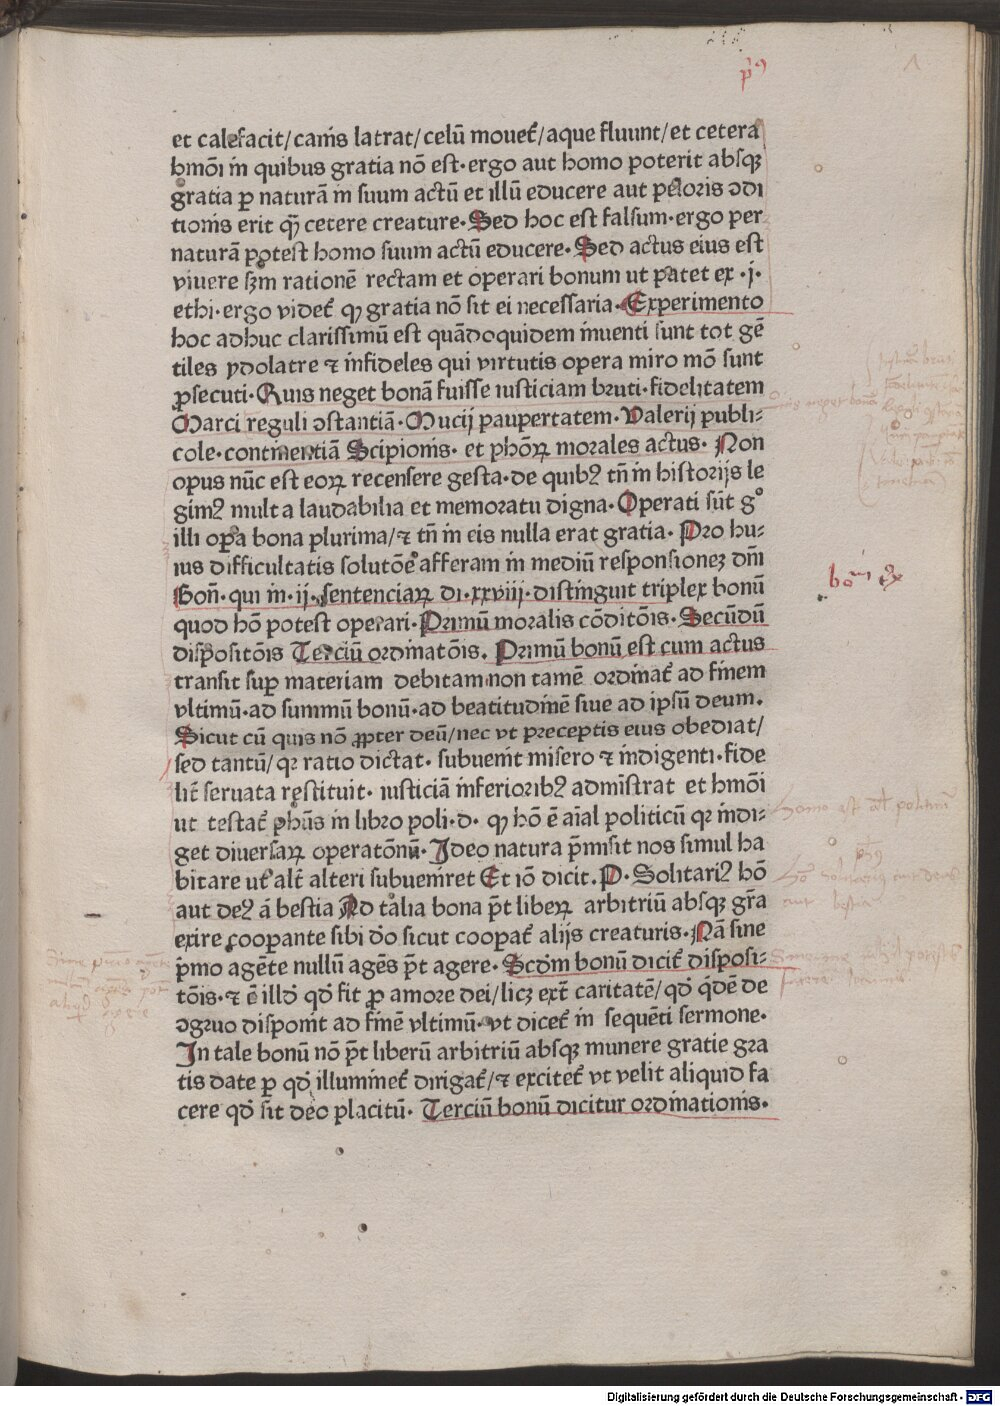 et calefacit/canis latrat/celū mouet᷑/aque fluunt/et cetera
hmōi in quibus gratia nō est·ergo aut homo poterit absqꝫ
gratia ꝑ naturā in suum actū et illū educere aut peioris ↄdi
tionis erit qȝ cetere creature·Sed hoc est falsum·ergo per
naturā potest homo suum actū educere·Sed actus eius est
viuere sꝫm rationē rectam et operari bonum ut patet ex·j·
ethi·ergo videt᷑ qȝ gratia nō sit ei necessaria·Experimento
hoc adhuc clarissimū est quādoquidem inuenti sunt tot gē
tiles ydolatre ⁊ infideles qui virtutis opera miro mō sunt
ꝓsecuti·Quis neget bonā fuisse iusticiam bruti·fidelitatem
Marci reguli ↄstantiā·Mucij paupertatem·Valerij publi⸗
cole·continentiā Scipionis·et phōꝝ morales actus·Non
opus nūc est eoꝝ recensere gesta·de quibꝰ tn̄ in historijs le
gimꝰ multa laudabilia et memoratu digna·Operati sūt gͦ
illi oꝑa bona plurima/⁊ tn̄ in eis nulla erat gratia·Pro hu⸗
ius difficultatis solutōe afferam in mediū responsionez dn̄i
Bon̄·qui in·ij·sententiaꝝ di·xxviij·distinguit triplex bonū
quod hō potest operari·Primū moralis cōditōis·Secūdū
dispositōis Terciū ordinatōis·Primū bonū est cum actus
transit suꝑ materiam debitam·non tamē ordinat᷑ ad finem
vltimū·ad summū bonū·ad beatitudinē siue ad ipsū deum·
Sicut cū quis nō ꝓpter deū/nec vt preceptis eius obediat/
sed tantū/qꝛ ratio dictat·subuenit misero ⁊ indigenti·fide
lit᷑ seruata restituit·iusticiā inferioribꝰ admīstrat et hmōi
ut testat᷑ phūs in libro poli·d·qȝ hō ē aīal politicū qꝛ indi⸗
get diuersaꝝ operatōnū·Ideo natura ꝑmisit nos simul ha
bitare ut alt᷑ alteri subueniret Et iō dicit·P·Solitariꝰ hō
aut deꝰ ā bestia Ad talia bona p̄t liberꝝ arbitriū absqꝫ gr̄a
exire cooꝑante sibi do sicut cooꝑat᷑ alijs creaturis·Nā sine
p̄mo agēte nullū agēs p̄t agere·Scdm bonū dicit᷑ disposi⸗
tōis·⁊ ē illd̓ qd̓ fit ꝓ amore dei/licꝫ ext᷑ caritatē/qd̓ qdē de
ↄgruo disponit ad finē vltimū·vt dicet᷑ in sequēti sermone·
In tale bonū nō p̄t liberū arbitriū absqꝫ munere gratie gra
tis date ꝑ qd̓ illuminet᷑ dirigat᷑/⁊ excitet᷑ vt velit aliquid fa
cere qd̓ sit deo placitū·Terciū bonū dicitur ordinationis·
Homo est aīal politicū
Digitalisierung gefördert durch die Deutsche Forschungsgemeinschaft - DFG